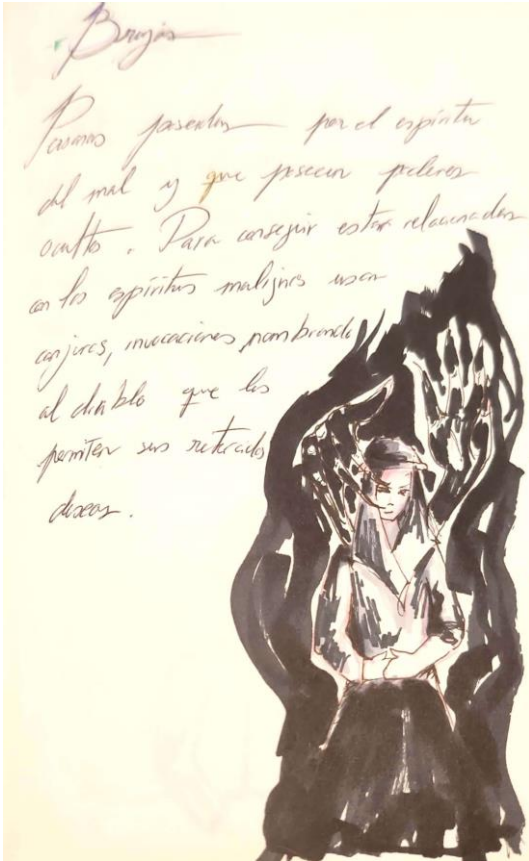 Brujas
Personas poseidas por el espíritu
del mal y que poseen poderes
ocultos. Para conseguir estar relacionadas
con los espíritus malignos usan
conjuros, invocaciones, nombrando
al diablo que les
permiten sus retorcidos
deseos.